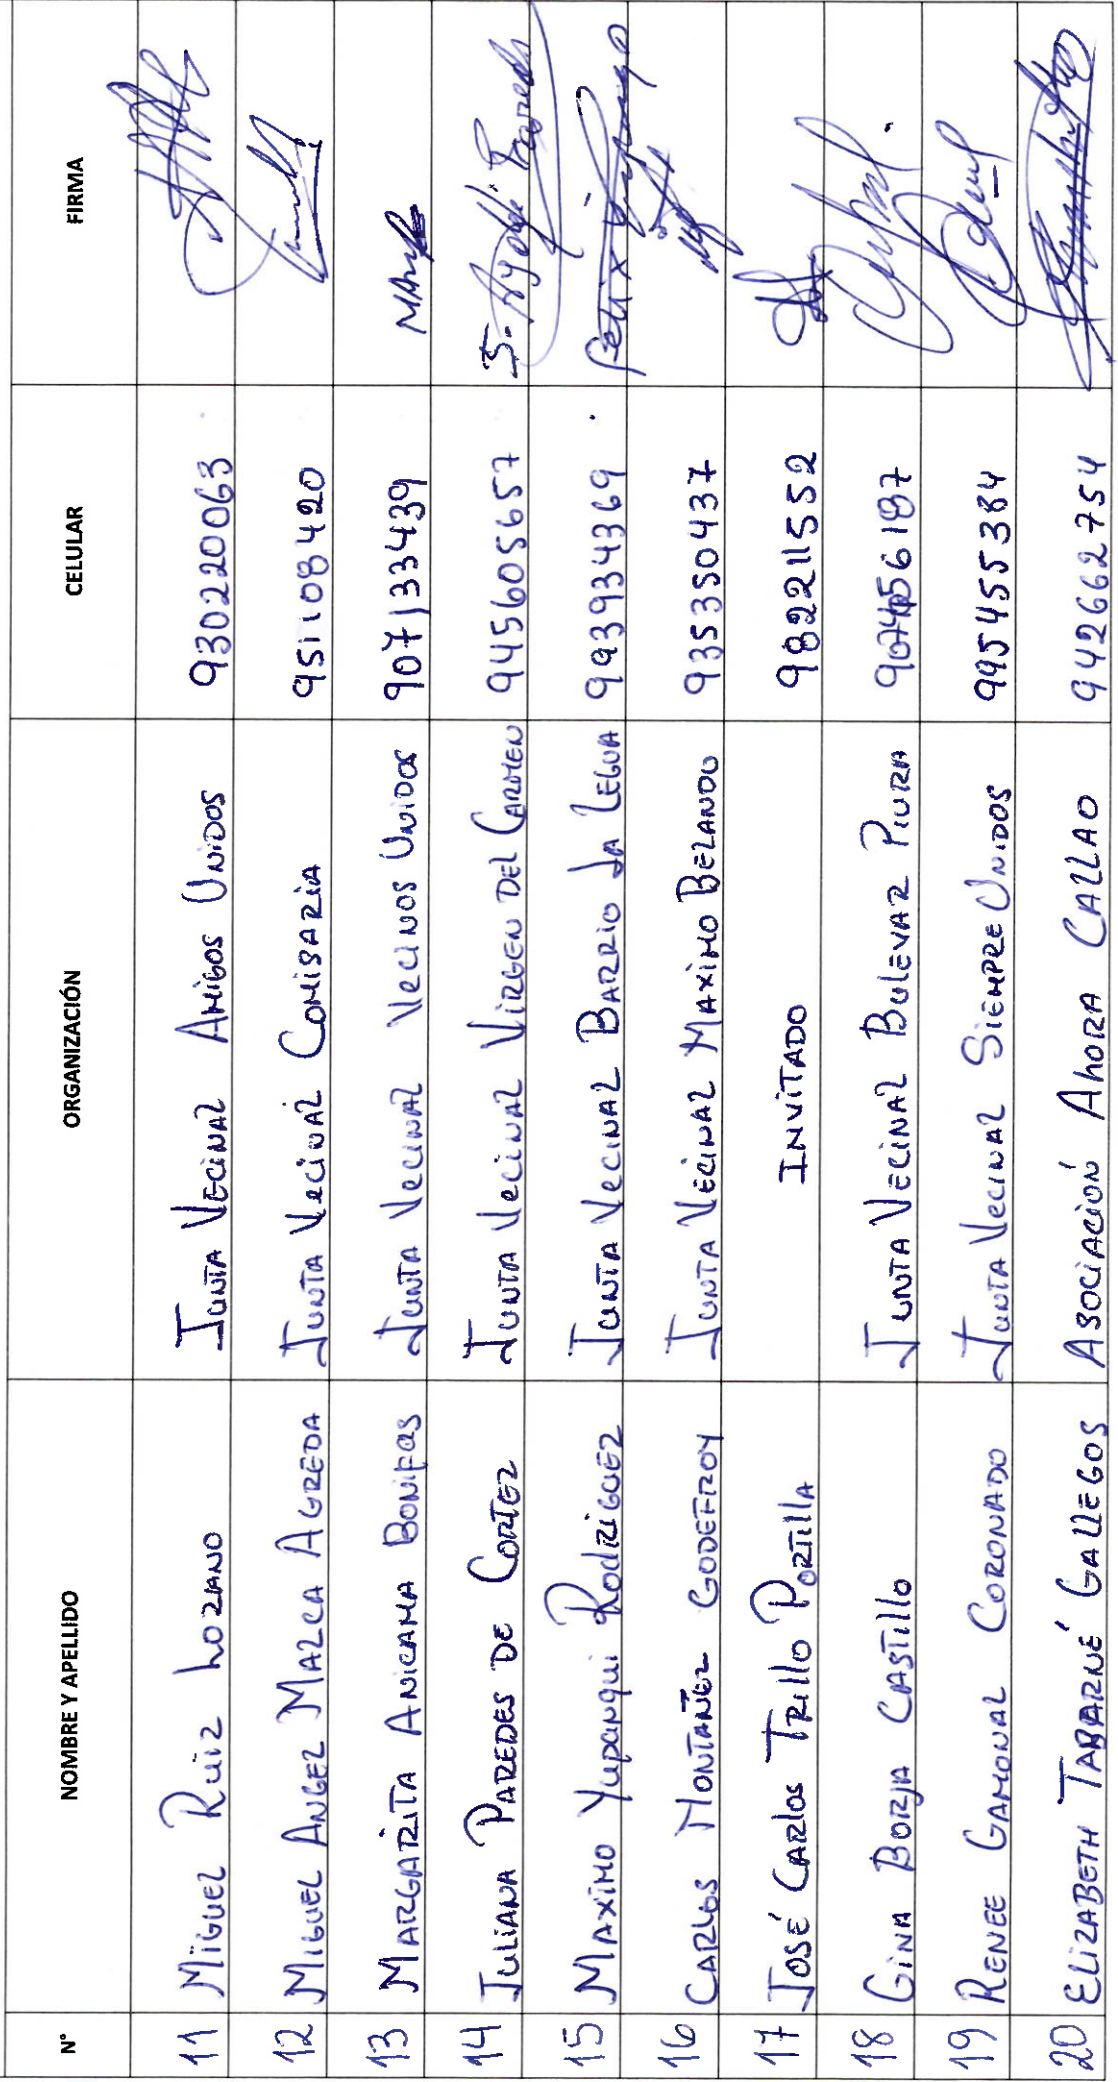 N° NOMBRE Y APELLIDO ORGANIZACIÓN CELULAR FIRMA
11 Miguel Ruiz Lozano Junta Vecinal Amigos Unidos 930220063
12 Miguel Angel Malca Agreda Junta Vecinal Comisaria 951108420
13 Margarita Anicama Bonifas Junta Vecinal Vecinos Unidos 907133439
14 Juliana Paredes de Cortez Junta Vecinal Virgen del Carmen 945605657
15 Maximo Yupanqui Rodriguez Junta Vecinal Barrio La Legua 993934369
16 Carlos Montañez Godefroy Junta Vecinal Maximo Belando 935350437
17 José Carlos Trillo Portilla INVITADO 982211552
18 Gina Borja Castillo Junta Vecinal Bulevar Piura
19 Renee Gamonal Coronado Junta Vecinal Siempre Unidos 995455384
20 Elizabeth Tabarné Gallegos Asociación Ahora Callao 942662754